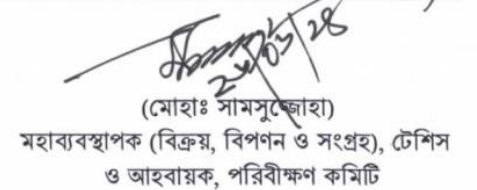 (মোহাঃ সামসুজ্জোহা)
মহাব্যবস্থাপক (বিক্রয়, বিপণন ও সংগ্রহ), টেশিস
ও আহবায়ক, পরিবীক্ষণ কমিটি